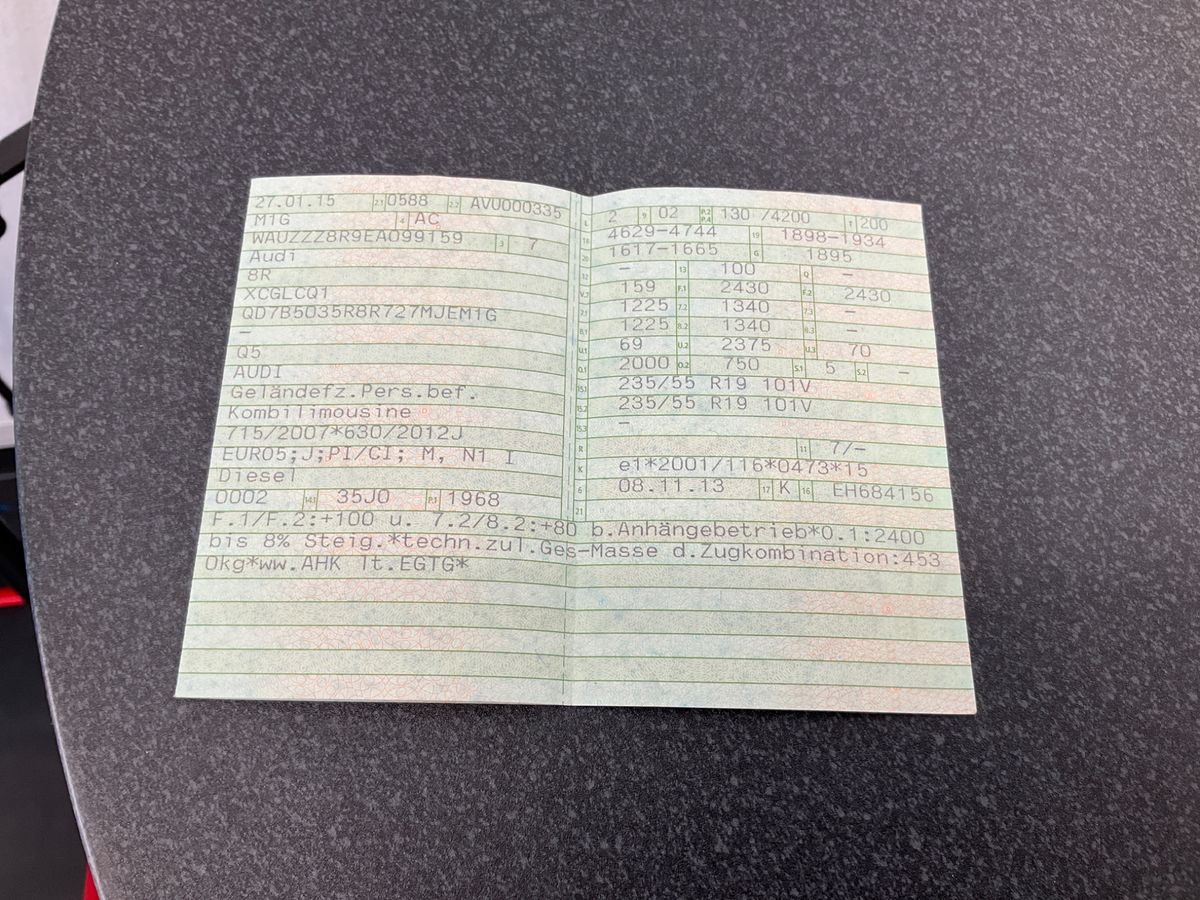 27.01.15 2.1 0588 2.2 AVU000335
M1G 4 AC
WAUZZZ8R9EA099159 3 7
Audi
8R
XCGLCQ1
QD7B5035R8R727MJEM1G
–
Q5
AUDI
Geländefz.Pers.bef.
Kombilimousine
715/2007*630/2012J
EURO5;J;PI/CI; M, N1 I
Diesel
0002 14.1 35J0 P.1 1968
L 2 9 02 P.2 P.4 130 /4200 T 200
18 4629-4744 19 1898-1934
20 1617-1665 G 1895
12 – 13 100 Q –
V.7 159 F.1 2430 F.2 2430
7.1 1225 7.2 1340 7.3 –
8.1 1225 8.2 1340 8.3 –
U.1 69 U.2 2375 U.3 70
O.1 2000 O.2 750 S.1 5 S.2 –
15.1 235/55 R19 101V
15.2 235/55 R19 101V
15.3 –
R 11 7/–
K e1*2001/116*0473*15
6 08.11.13 17 K 16 EH684156
21
F.1/F.2:+100 u. 7.2/8.2:+80 b.Anhängebetrieb*O.1:2400
bis 8% Steig.*techn.zul.Ges-Masse d.Zugkombination:453
0kg*ww.AHK lt.EGTG*